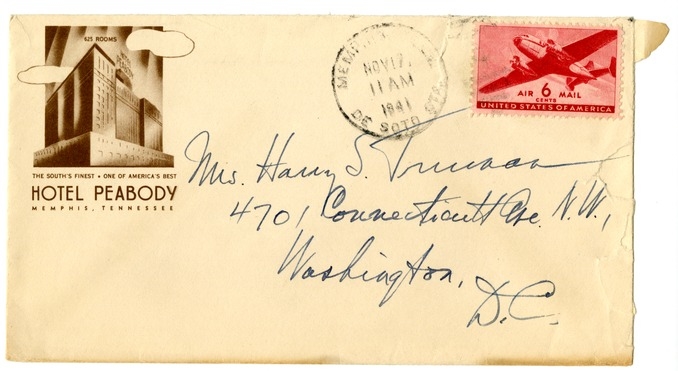 625 ROOMS
THE SOUTH'S FINEST • ONE OF AMERICA'S BEST
HOTEL PEABODY
MEMPHIS, TENNESSEE
NOV 17
11 AM
1941
DE SOTO STA.
AIR 6 MAIL
CENTS
UNITED STATES OF AMERICA
Mrs. Harry S. Truman
4701 Connecticutt Ave. N.W.,
Washington,
D.C.